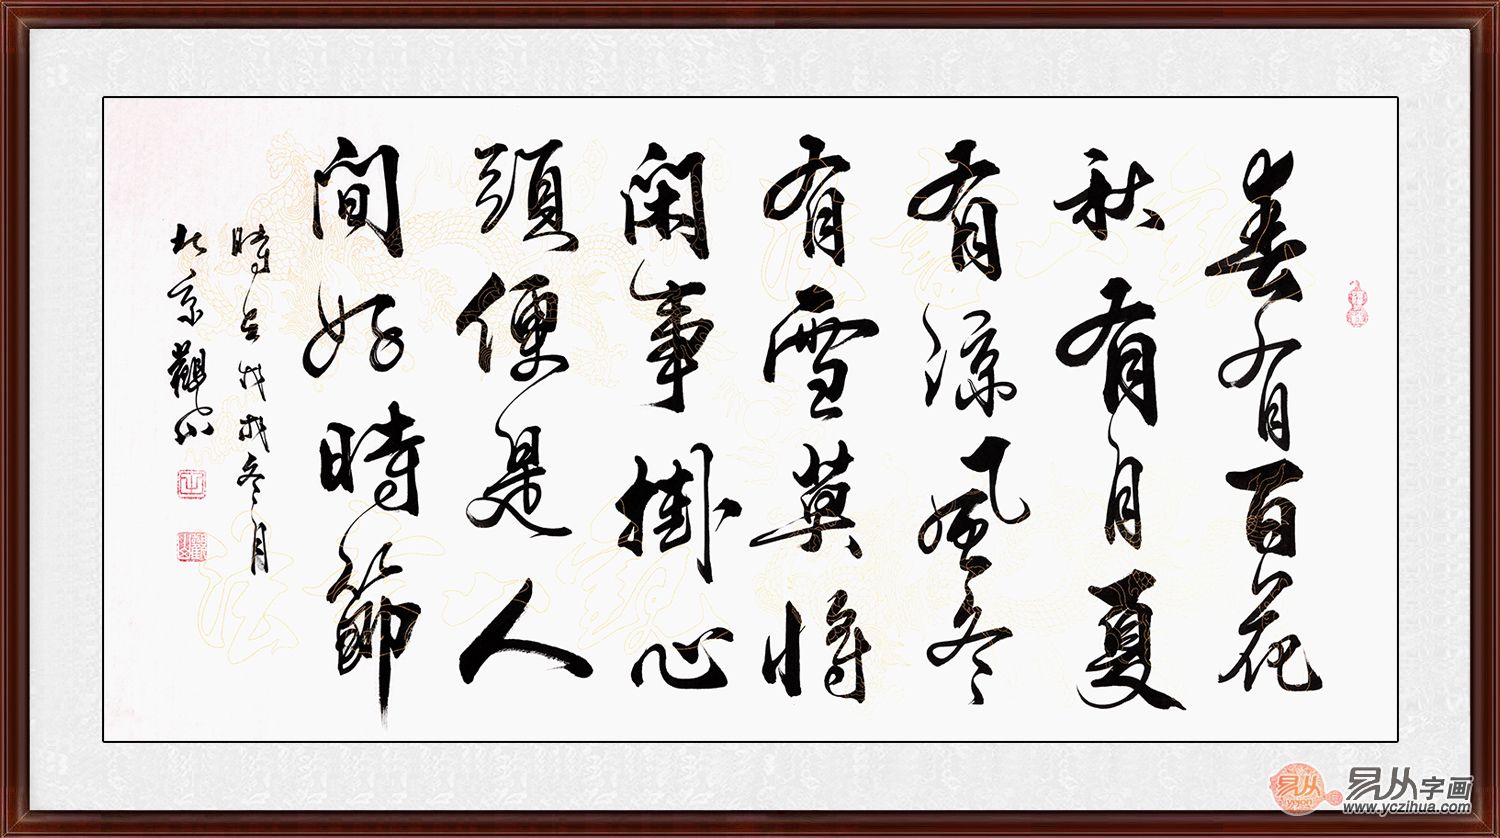 春有百花
秋有月夏
有涼風冬
有雪莫將
閑事掛心
頭便是人
間好時節
時在戊戌冬月
北京觀山
易从
易从字画
www.yczihua.com